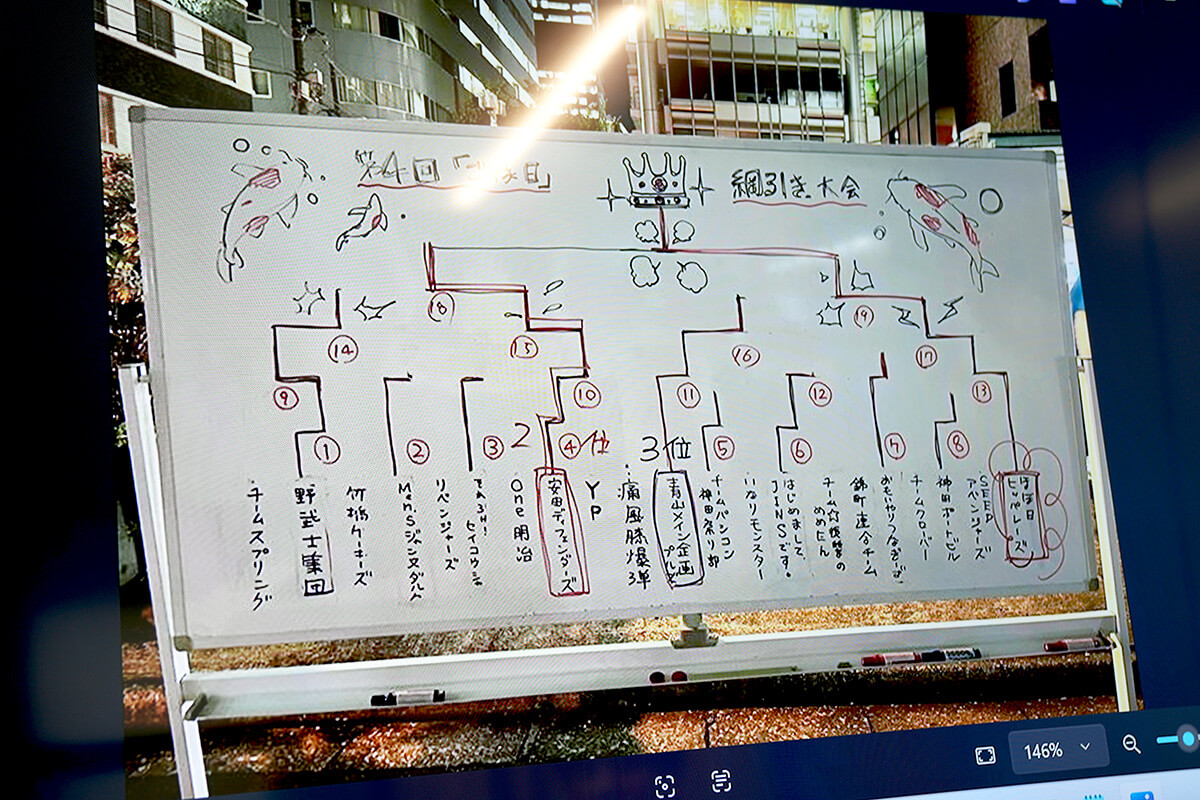 第4回「
日」
綱引き大会
⑱
⑲
⑭
⑮
⑯
⑰
⑨
⑩
⑪
⑫
⑬
①
②
③
2
④位
3位
⑤
⑥
⑦
⑧
チームスプリング
野武士集団
竹橋ケーキーズ
Men,Sジャンヌダルム
リベンジャーズ
One明治
安田ディフェンダーズ
YP
痛風膝爆弾
青山メイン企画
プルズ
チームパンコン
神田祭り部
いなりモンスター
はじめまして、
JINSです。
チーム☆
めめたん
錦町連合チーム
おもいやりつなぎ
チームクローバー
神田ポートビル
SEEP
アベンジャーズ
ほぼ日
ヒッパレーズ
146%